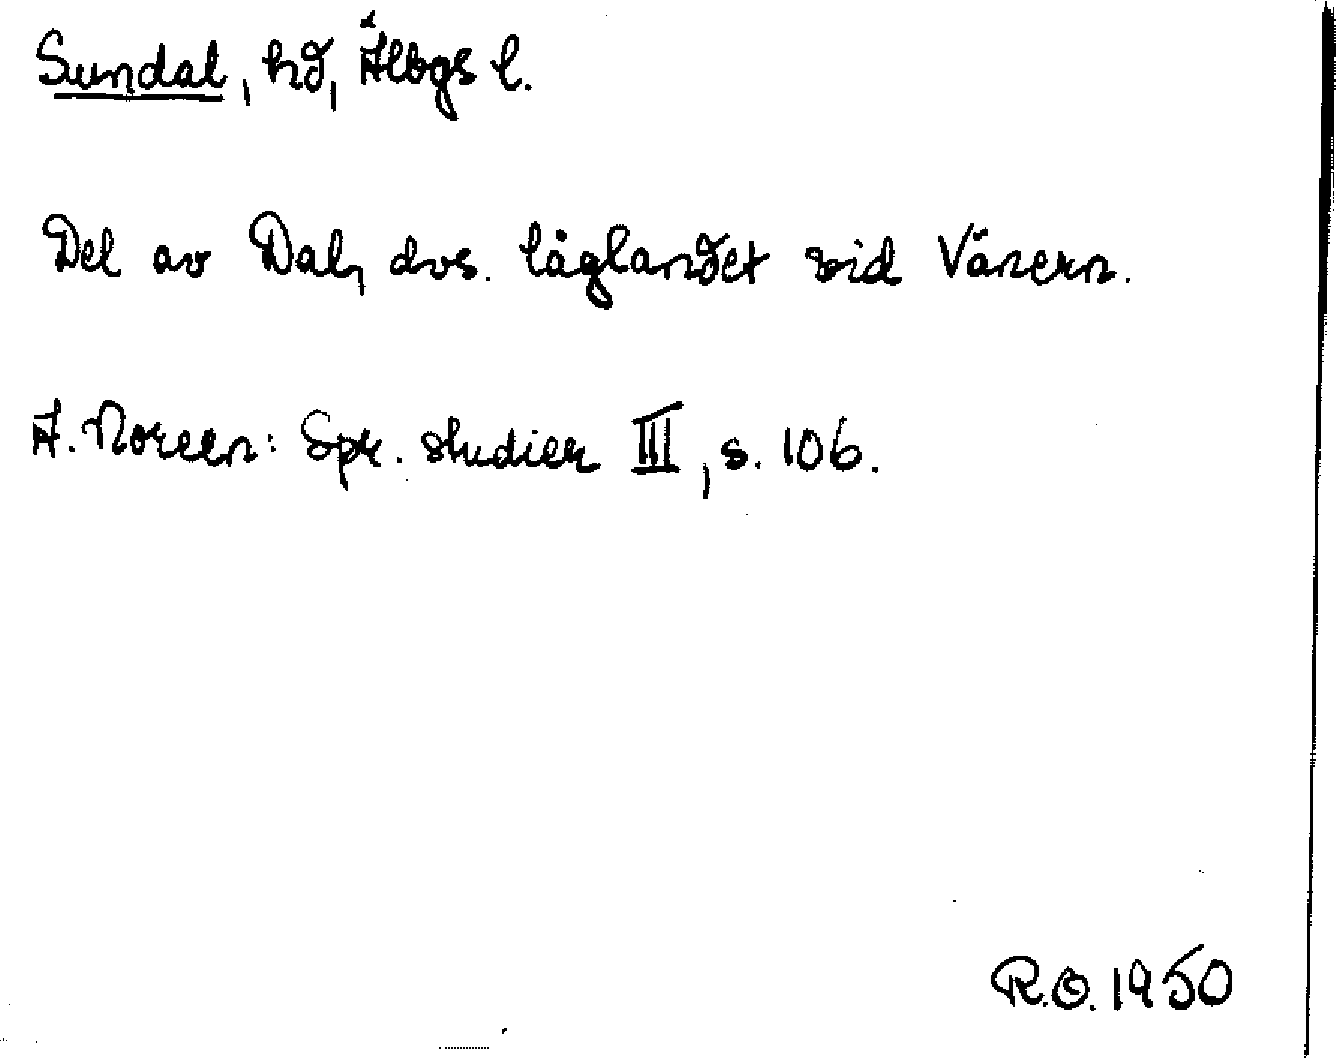 Sundal, hd, Älvbgs l.
Del av Dal, dvs. låglandet vid Vänern.
A. Noreen: Spr. studier III, s. 106.
R.O. 1950